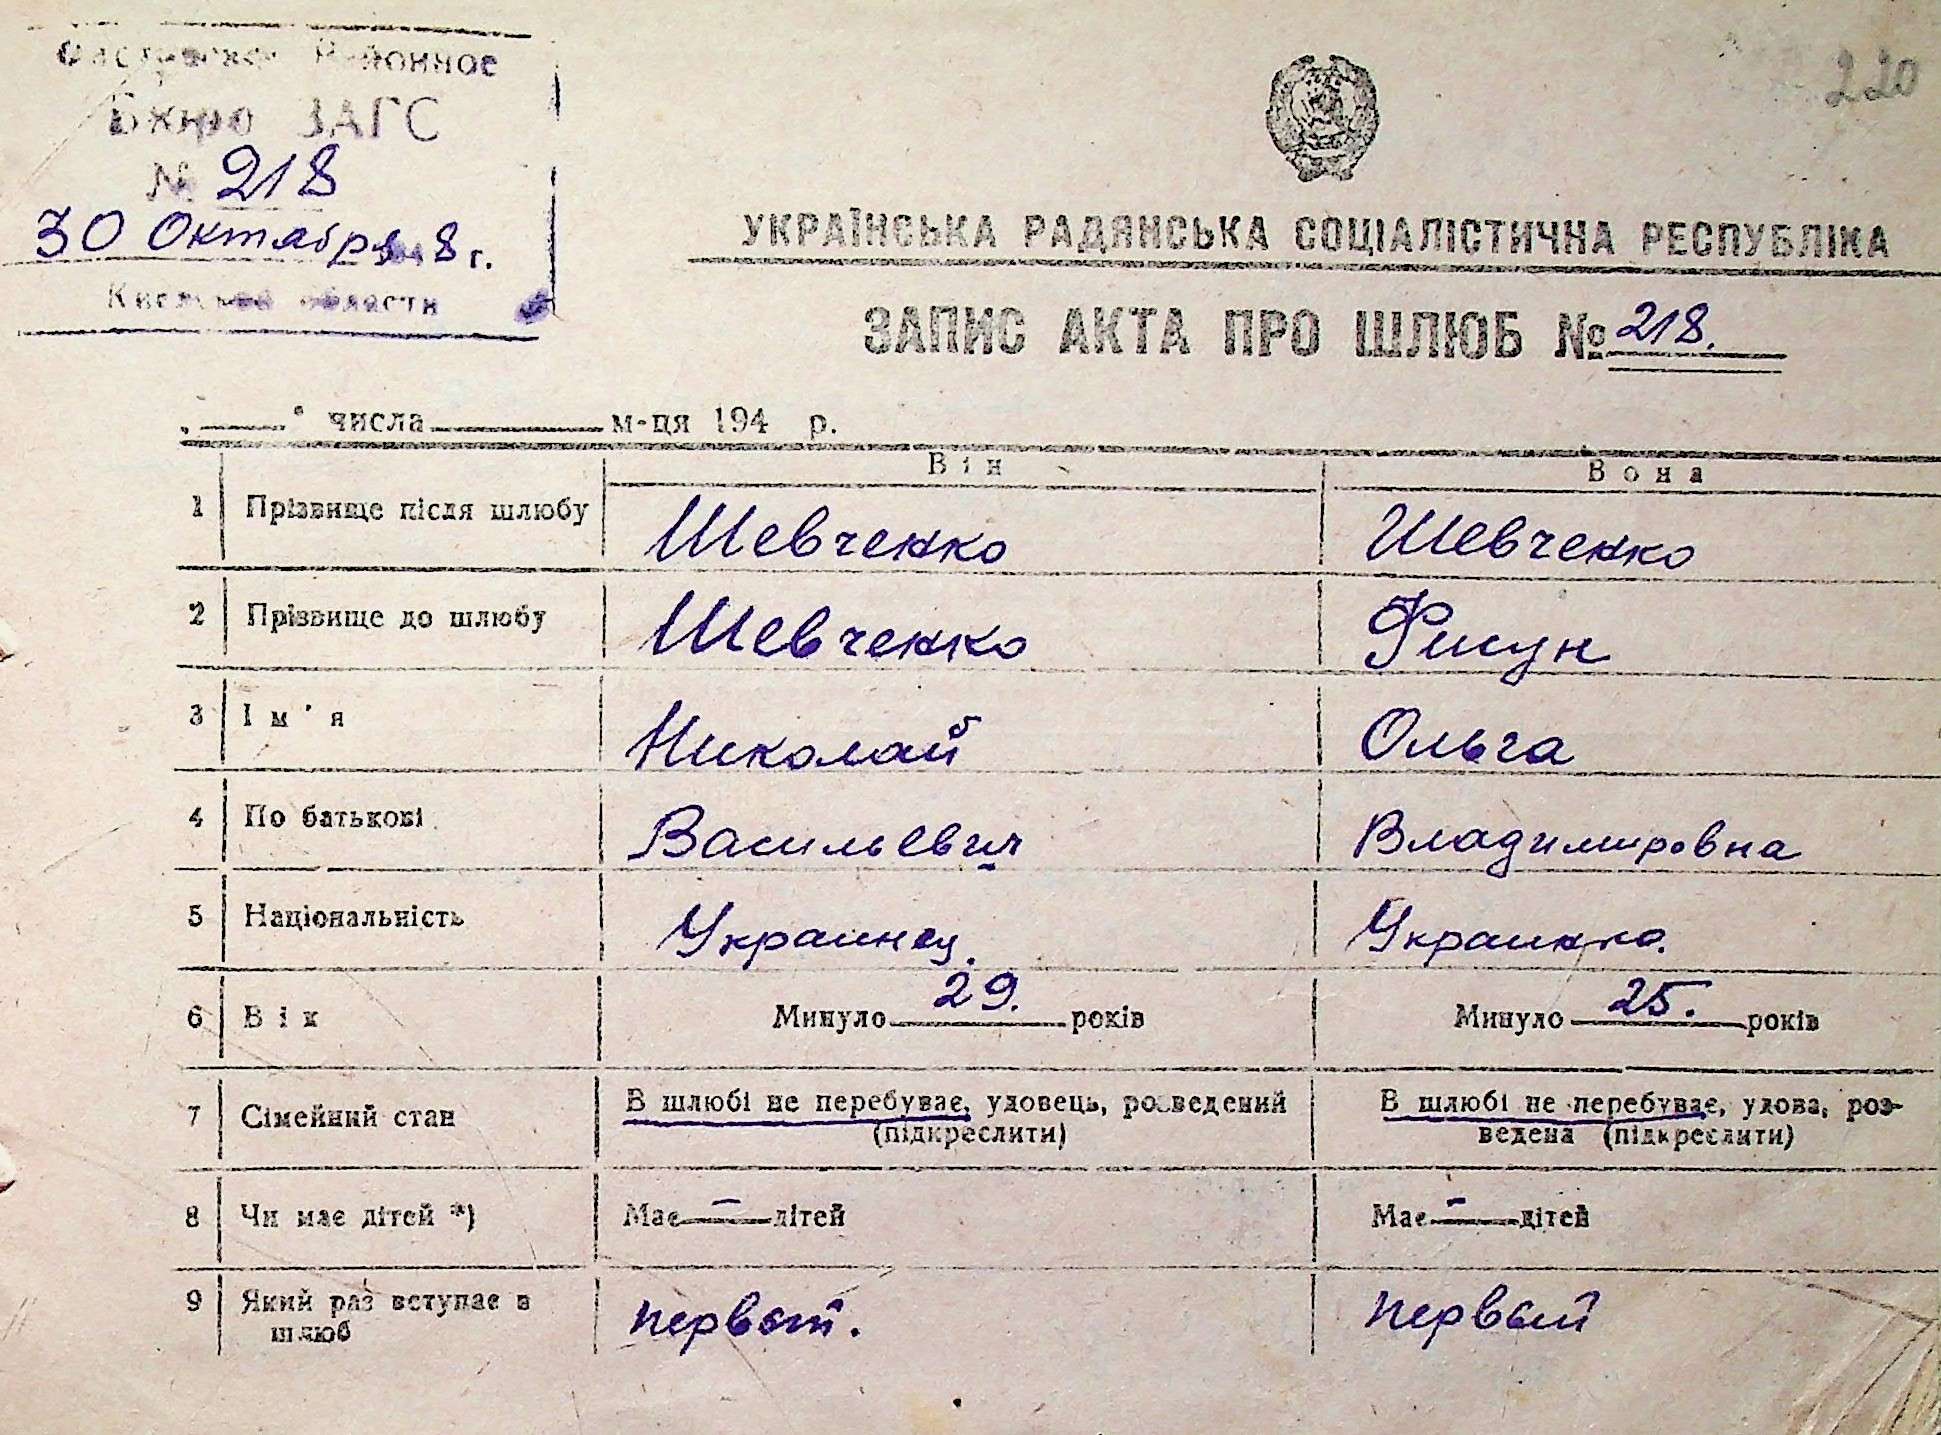 Районное
Бюро ЗАГС
№ 218
30 Октября 8 г.
Киевской области
220
УКРАЇНСЬКА РАДЯНСЬКА СОЦІАЛІСТИЧНА РЕСПУБЛІКА
ЗАПИС АКТА ПРО ШЛЮБ № 218.
„ “ числа м-ця 194 р.
Він Вона
1 Прізвище після шлюбу Шевченко Шевченко
2 Прізвище до шлюбу Шевченко Фисун
3 Ім'я Николай Ольга
4 По батькові Васильевич Владимировна
5 Національність Украинец. Украинка.
6 Вік Минуло 29. років Минуло 25. років
7 Сімейний стан В шлюбі не перебуває, удовець, розведений В шлюбі не перебуває, удова, роз-
(підкреслити) ведена (підкреслити)
8 Чи має дітей *) Має – дітей Має – дітей
9 Який раз вступає в первый. первый
шлюб